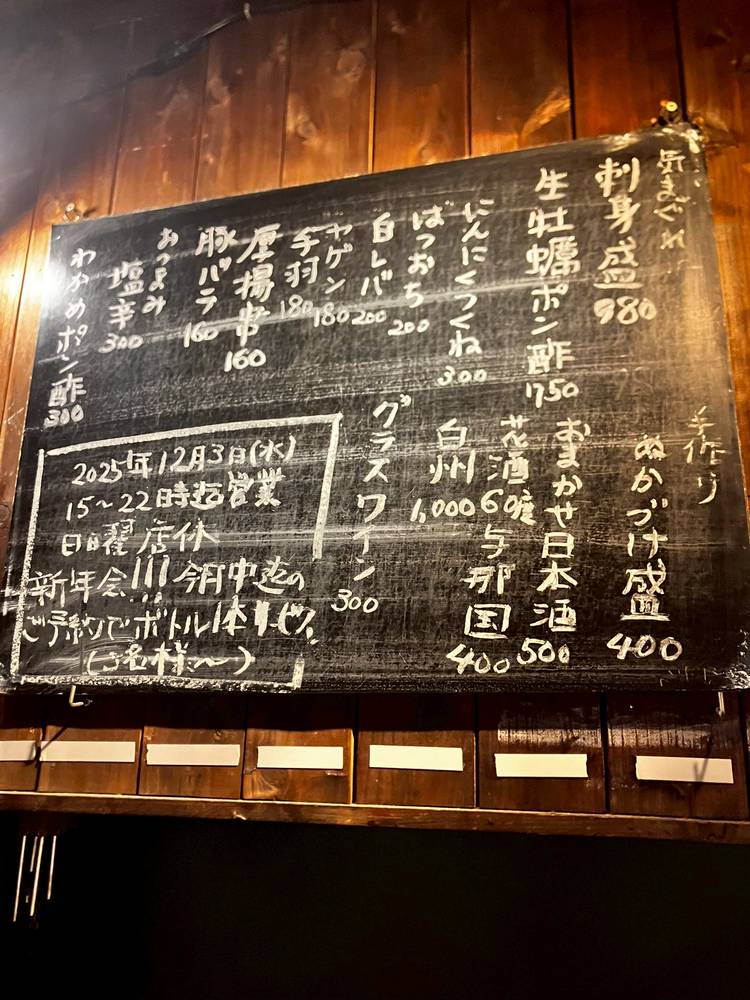 気まぐれ
刺身盛 980
生牡蠣ポン酢 1750
にんにくつくね 300
ぼつおち 200
白レバ 200
ヤゲン 180
手羽 180
厚揚串 160
豚バラ 160
おつまみ
塩辛 300
わかめポン酢 300
手作り
ぬかづけ盛 400
おまかせ日本酒 500
花酒60度与那国 400
白州 1,000
グラスワイン 300
2025年12月3日(水)
15〜22時迄営業
日曜店休
新年会!!! 今月中迄の
ご予約でボトル1本